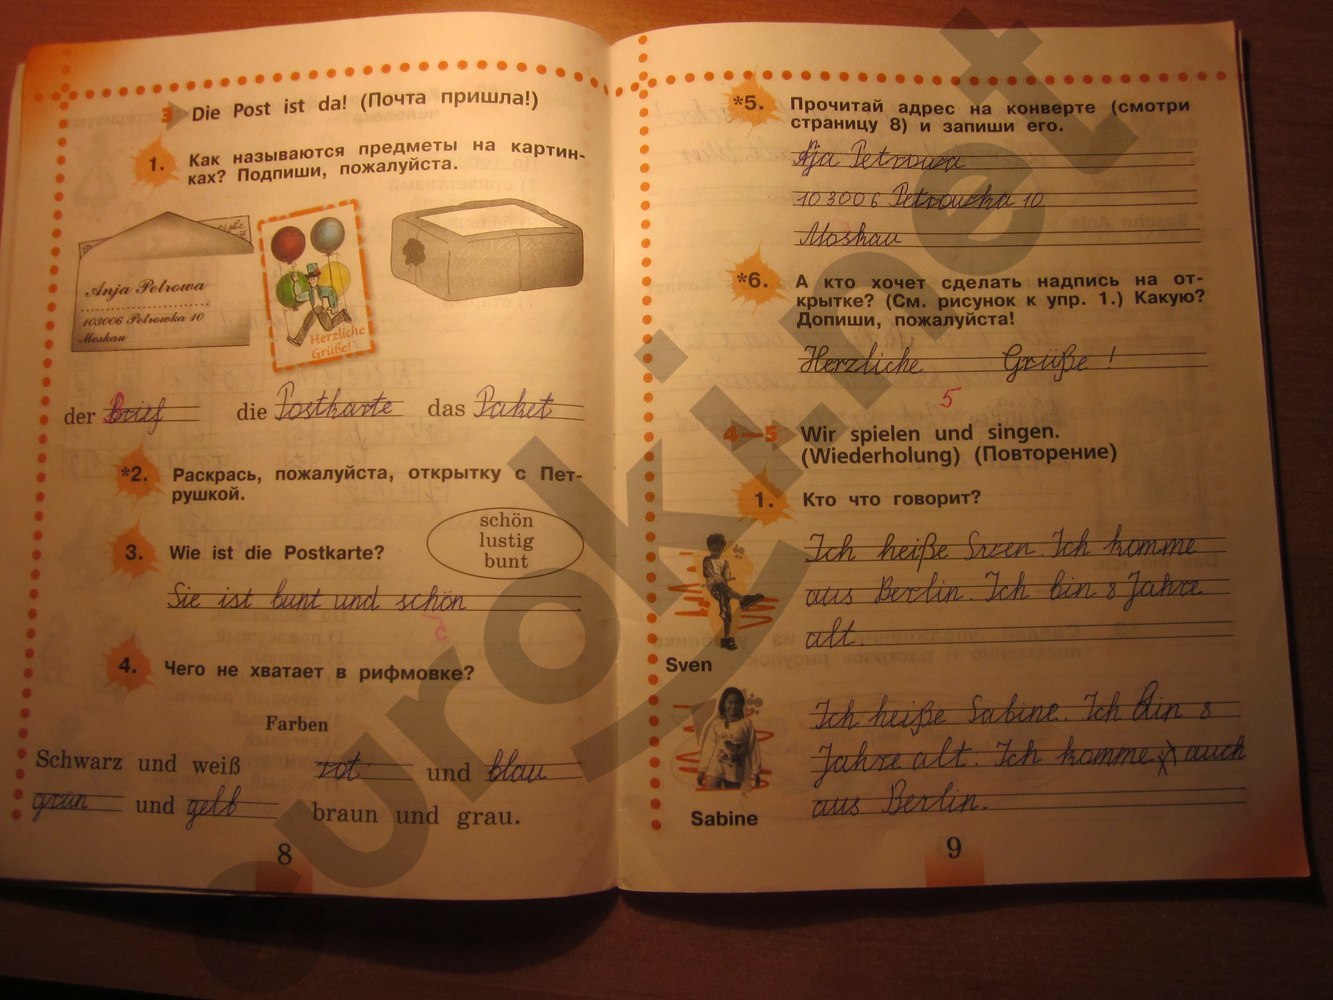 3 Die Post ist da! (Почта пришла!)
1. Как называются предметы на картин-
ках? Подпиши, пожалуйста.
Anja Petrowa
103006 Petrowka 10
Moskau
Herzliche
Grüße!
der Brief die Postkarte das Paket
*2. Раскрась, пожалуйста, открытку с Пет-
рушкой.
3. Wie ist die Postkarte?
schön
lustig
bunt
Sie ist bunt und schön
5
4. Чего не хватает в рифмовке?
Farben
Schwarz und weiß rot und blau
grün und gelb braun und grau.
8
*5. Прочитай адрес на конверте (смотри
страницу 8) и запиши его.
Aja Petrowa
103006 Petrowka 10
Moskau
*6. А кто хочет сделать надпись на от-
крытке? (См. рисунок к упр. 1.) Какую?
Допиши, пожалуйста!
Herzliche Grüße !
5
4—5 Wir spielen und singen.
(Wiederholung) (Повторение)
1. Кто что говорит?
Ich heiße Sven. Ich komme
aus Berlin. Ich bin 8 Jahre
alt.
Sven
Ich heiße Sabine. Ich bin 8
Jahre alt. Ich komme auch
aus Berlin.
Sabine
9
euroki.net